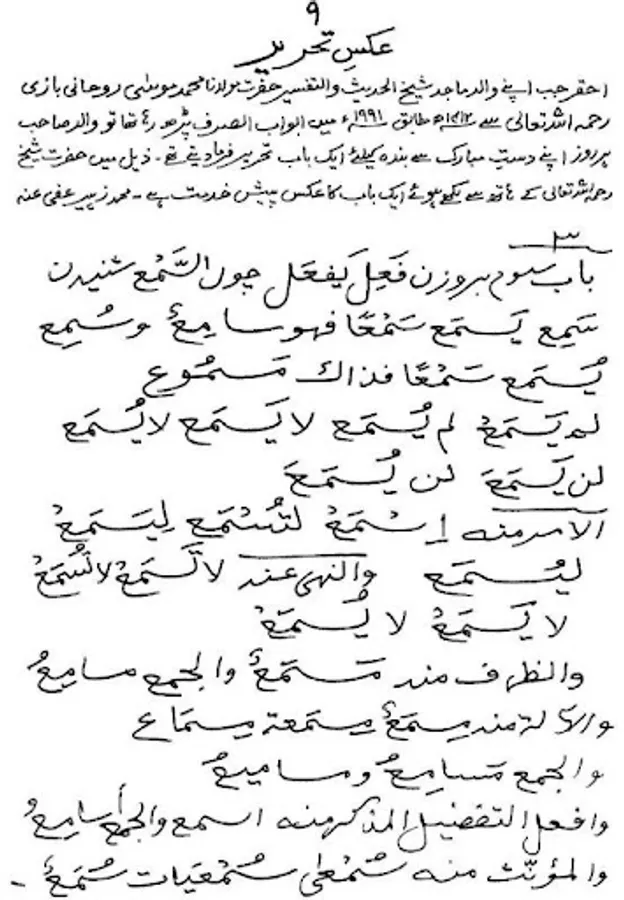 ۹
عکسِ تحریر
احقر جب اپنے والد ماجد شیخ الحدیث والتفسیر حضرت مولانا محمد موسیٰ روحانی بازی
رحمہ اللہ تعالیٰ سے ۱۴۱۲ھ مطابق ۱۹۹۱ء میں ابواب الصرف پڑھ رہا تھا تو والد صاحب
ہر روز اپنے دستِ مبارک سے بندہ کیلئے ایک باب تحریر فرما دیتے تھے۔ ذیل میں حضرت شیخ
رحمہ اللہ تعالیٰ کے ہاتھ سے لکھے ہوئے ایک باب کا عکس پیش خدمت ہے۔ محمد زہیر عفی عنہ
۳
باب سوم بروزن فَعِلَ يَفعَل چوں السَّمْع شنیدن
سَمِع يَسمَع سَمْعًا فهو سامِعٌ وسُمِع
يُسمَع سَمْعًا فذاك مَسمُوع
لم يَسمَعْ لم يُسمَع لا يَسمَع لا يُسمَع
لن يَسمَعَ لن يُسمَعَ
الامر منه اِسْمَعْ لتُسْمَع لِيَسمَعْ
ليُسمَع والنهى عنه لا تَسمَعْ لا تُسمَعْ
لا يَسمَعْ لا يُسمَعْ
والظرف منه مَسمَعٌ والجمع مسامِعُ
والآلة منه مِسمَعٌ مِسمَعة مِسمَاع
والجمع مَسامِعُ ومساميعُ
وافعل التفضيل المذكر منه اسمع والجمع أسامِعُ
والمؤنّث منه سُمْعٰى سُمْعَيات سُمَعٌ ۔